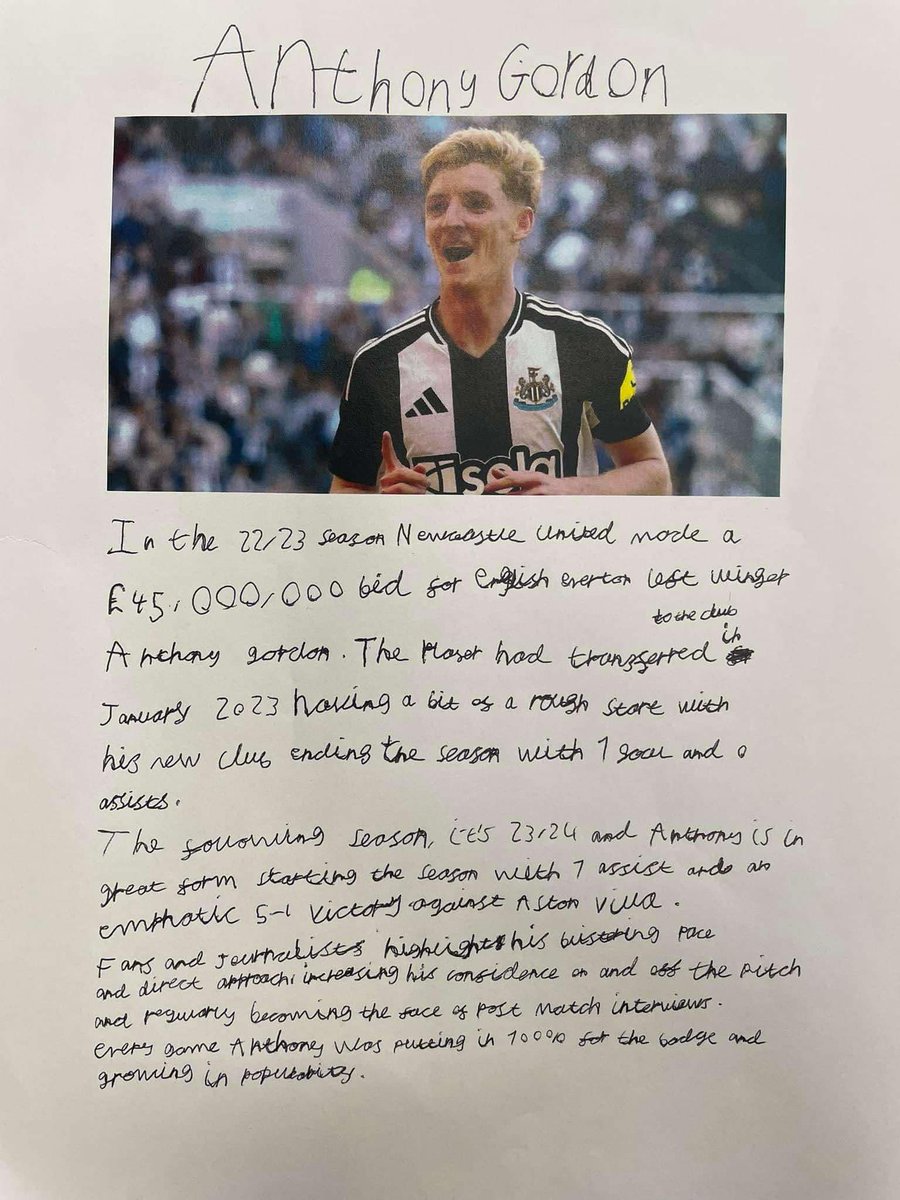 Anthony Gordon
sela
In the 22/23 season Newcastle United made a
£45,000,000 bid for English everton left winger
to the club
Anthony gordon. The Player had transferred in
January 2023 having a bit of a rough start with
his new club ending the season with 1 goal and 0
assists.
The following season, it's 23/24 and Anthony is in
great form starting the season with 1 assist and an
emphatic 5-1 victory against Aston Villa.
Fans and Journalists highlights his blistering pace
and direct approach, increasing his confidence on and off the pitch
and regularly becoming the face of post match interviews.
every game Anthony was putting in 100% for the badge and
growing in popularity.